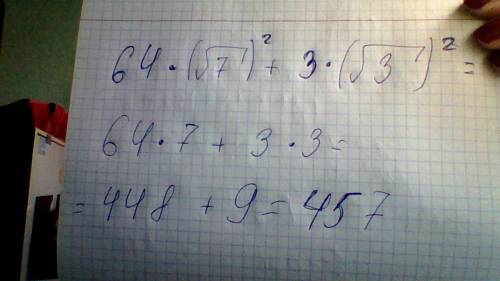 64 · (√7)² + 3 · (√3)² =
64 · 7 + 3 · 3 =
= 448 + 9 = 457